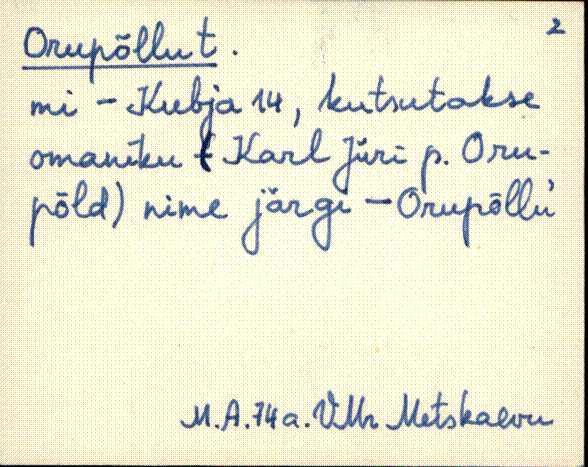 2
Orupõllu t.
mi - Kubja 14, kutsutakse
omaniku (Karl Jüri p. Oru-
põld) nime järgi - Orupõllu'
M.A. 74 a. VMr Metskaevu